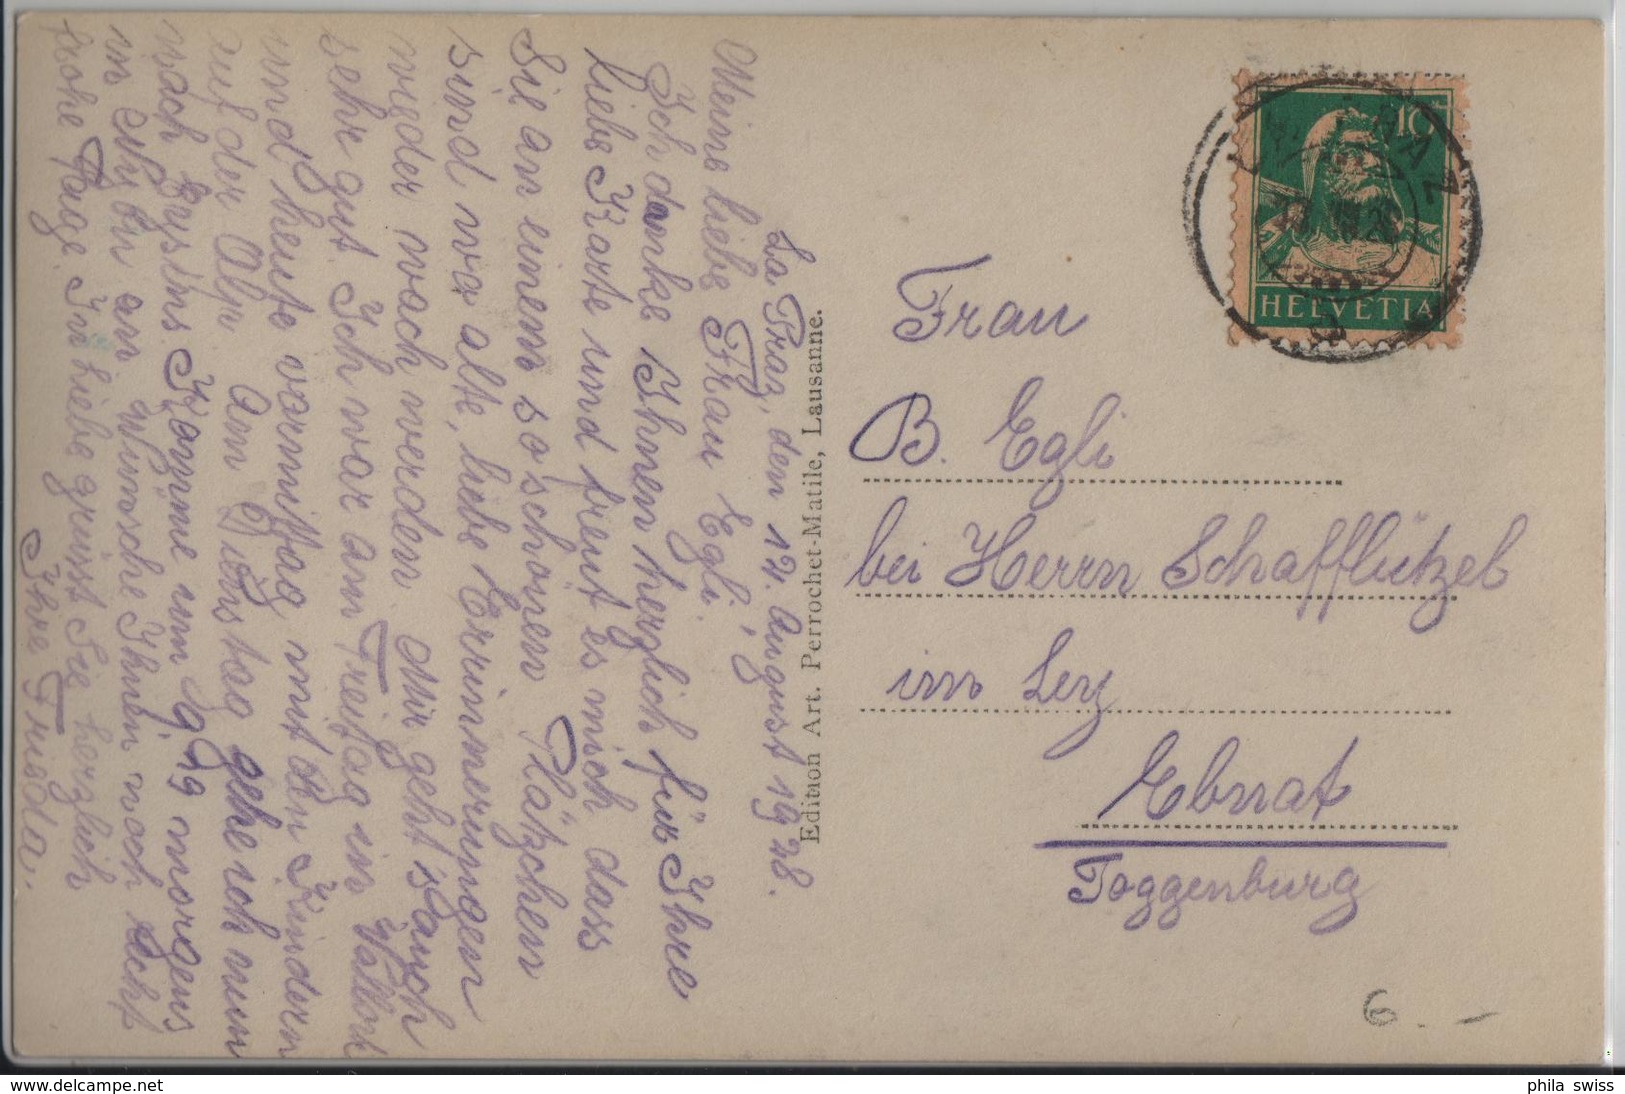 La Praz, den 12. August 1928.
Meine liebe Frau Egli!
Ich danke Ihnen herzlich für Ihre
liebe Karte und freut es mich dass
Sie an einem so schönen Plätzchen
sind wo alte, liebe Erinnerungen
wieder wach werden. Mir geht's auch
sehr gut. Ich war am Freitag im Vallorb
und heute vormittag mit den Kindern
auf der Alp. Am Dienstag gehe ich nun
nach Bussins. Komme um morgens
in an. Wünsche Ihnen noch recht
frohe Tage. In Liebe grüsst Sie herzlich
Ihre Frieda.
Edition Art. Perrochet-Matile, Lausanne.
10
HELVETIA
LA PRAZ
Frau
B. Egli
bei Herrn Schafflützel
im Ley
Ebnat
Toggenburg
6.-
www.delcampe.net
phila swiss